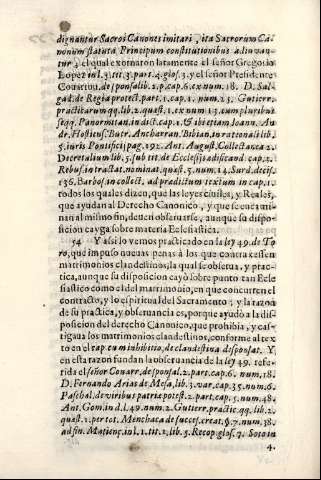 dignantur Sacros Canones imitari, ita Sacrorum Ca-
nonum statuta Principum constitutionibus adiuvan-
tur: el qual exornaron latamente el señor Gregorio
Lopez in l. 3. tit. 3. part. 4. glos. 3. y el señor Presidente
Covarruv. de sponsalib. 2. p. cap. 6. ex num. 18. D. Sal-
gad. de Regia protect. part. 1. cap. 1. num. 23. Gutierr.
practicarum qq. lib. 2. quæst. 1. ex num. 13. cum pluribus
seqq. Panormitan. in dict. cap. 1. & ibi etiam Ioann. An
dr. Hostiens. Butr. Ancharran. Bibian. in rationali lib.
5. iuris Pontificij pag. 192. Ant. August. Collectanea 2.
Decretalium lib. 5. sub tit. de Ecclesijs ædificand. cap. 2.
Rebuf. in tractat. nominat. quæst. 5. num. 14. Surd. decis.
136. Barbos. in collect. ad predictum textum in cap. 1.
todos los quales dizen, que las leyes civiles, y Reales,
que ayudan al Derecho Canonico, y que se encami-
nan al mismo fin, deben observarse, aunque su dispo-
sicion cayga sobre materia Eclesiastica.
54 Y assi lo vemos practicado en la ley 49. de To
ro, que impuso nuevas penas à los que contraxessen
matrimonios clandestinos, la qual se observa, y prac-
tica, aunque su disposicion cayò sobre punto tan Ecle
siastico como el del matrimonio, en que concurren el
contracto, y lo espiritual del Sacramento; y la razon
de su practica, y observancia es, porque ayudò à la dis-
posicion del derecho Canonico, que prohibia, y cas-
tigava los matrimonios clandestinos, conforme al tex
to en el cap. cum inhibitio, de clandestina desponsat. Y
en esta razon fundan la observancia de la ley 49. refe-
rida el señor Covarr. de sponsal. 2. part. cap. 6. num. 18.
D. Fernando Arias de Mesa, lib. 3. var. cap. 35. num. 6.
Paschal. de viribus patriæ potest. 2. part. cap. 5. num. 48.
Ant. Gom. in d. l. 49. num. 2. Gutierr. practic. qq. lib. 2.
quæst. 1. per tot. Menchaca de succes. creat. §. 7. num. 38.
ad fin. Matienç. in l. 1. tit. 1. lib. 5. Recop. glos. 7. Soto in
4.